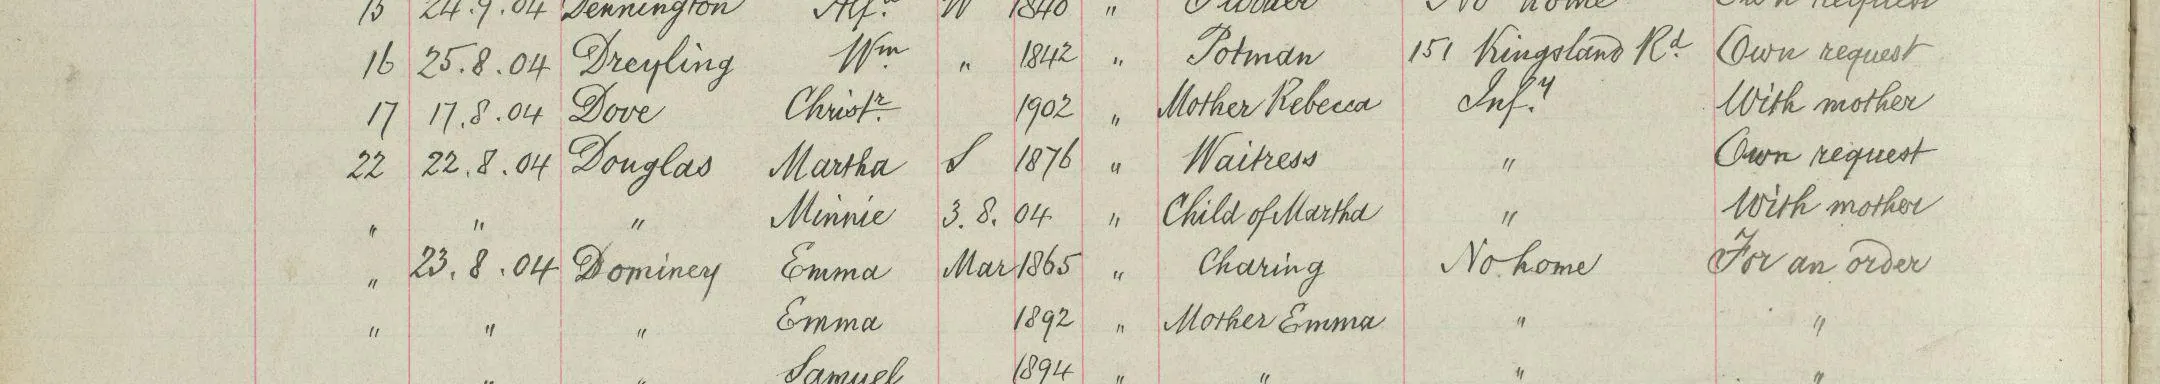 15 24.9.04 Dennington Alf.d W 1840 " No home Own request
16 25.8.04 Dreyling Wm " 1842 " Potman 151 Kingsland Rd. Own request
17 17.8.04 Dove Christr. 1902 " Mother Rebecca Inf.y With mother
22 22.8.04 Douglas Martha S 1876 " Waitress " Own request
" " " Minnie 3.8.04 " Child of Martha " With mother
" 23.8.04 Dominey Emma Mar 1865 " Charing No home For an order
" " " Emma 1892 " Mother Emma " "
" " Samuel 1894 " " " "